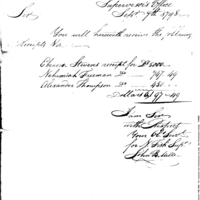 Supervisor's Office
Sept 7th 1798
Sir
You will herewith receive the following
receipts Viz
Ebenr Stevens receipt for D 5000
Nehemiah Freeman Do 747.49
Alexander Thompson Do 450
Dollars 6197.49
I am Sir
with Respect
Your Ob Servt
for N Fish Supr
John